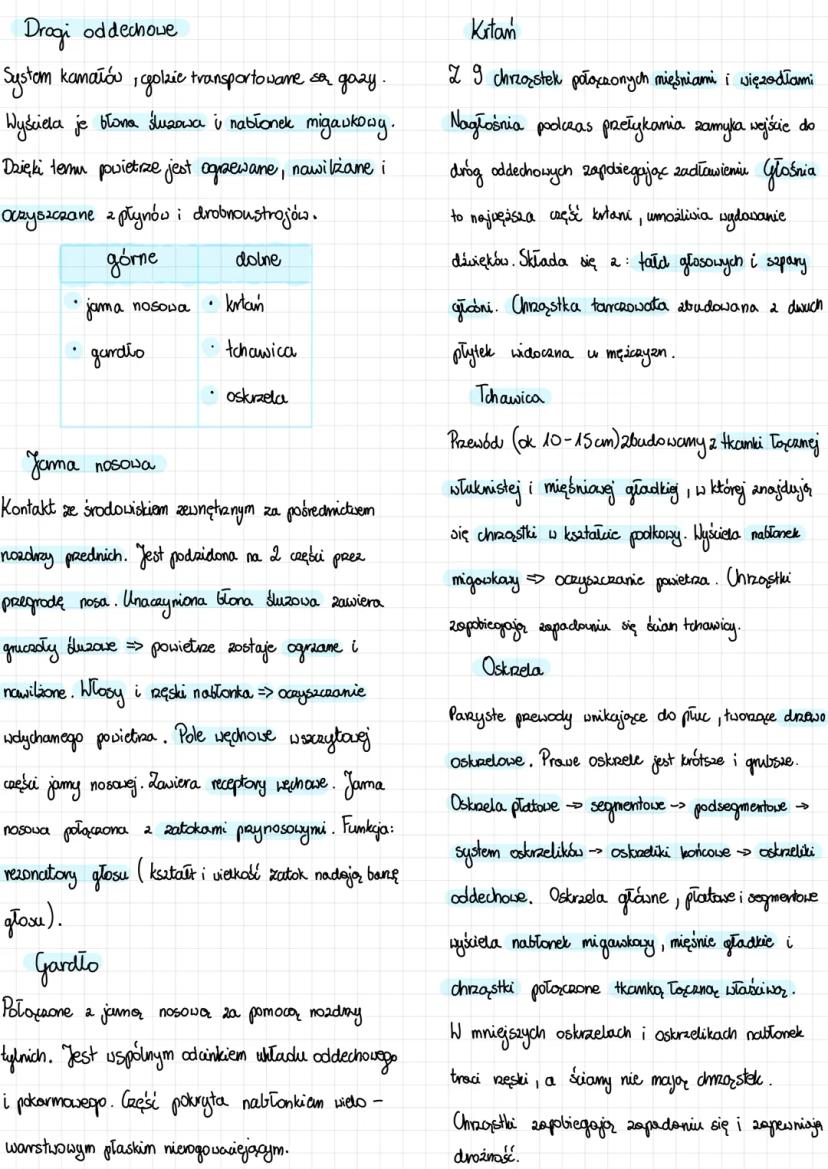 Drogi oddechowe
System kanałów, gdzie transportowane są gazy.
Wyściela je błona śluzowa i nabłonek migawkowy.
Dzięki temu powietrze jest ogrzewane, nawilżane i
oczyszczane z płynów i drobnoustrojów.
górne dolne
• jama nosowa • krtań
• gardło • tchawica
• oskrzela
Jama nosowa
Kontakt ze środowiskiem zewnętrznym za pośrednictwem
nozdrzy przednich. Jest podzidona na 2 części przez
przegrodę nosa. Unaczyniona błona śluzowa zawiera
gruczoły śluzowe => powietrze zostaje ogrzane i
nawilżone. Włosy i rzęski nabłonka => oczyszczanie
wdychanego powietrza. Pole węchowe w szczytowej
części jamy nosowej. Zawiera receptory węchowe. Jama
nosowa połączona z zatokami przynosowymi. Funkcja:
rezonatory głosu (kształt i wielkość zatok nadają barwę
głosu).
Gardło
Połączone z jamą nosową za pomocą nozdrzy
tylnich. Jest wspólnym odcinkiem układu oddechowego
i pokarmowego. Część pokryta nabłonkiem wielo-
warstwowym płaskim nierogowaciejącym.
Krtań
Z 9 chrząstek połączonych mięśniami i więzadłami
Nagłośnia podczas przełykania zamyka wejście do
dróg oddechowych zapobiegając zadławieniu Głośnia
to najwęższa część krtani, umożliwia wydawanie
dźwięków. Składa się z: fałd głosowych i szpary
głośni. Chrząstka tarczowata zbudowana z dwuch
płytek widoczna u mężczyzn.
Tchawica
Przewód (ok 10-15cm) zbudowany z tkanki łącznej
włuknistej i mięśniowej gładkiej, w której znajdują
się chrząstki w kształcie podkowy. Wyściela nabłonek
migawkowy => oczyszczanie powietrza. Chrząstki
zapobiegają zapadaniu się ścian tchawicy.
Oskrzela
Parzyste przewody wnikające do płuc, tworzące drzewo
oskrzelowe. Prawe oskrzele jest krótsze i grubsze.
Oskrzela płatowe → segmentowe → podsegmentowe →
system oskrzelików → oskrzeliki końcowe → oskrzeliki
oddechowe. Oskrzela główne, płatowe i segmentowe
wyściela nabłonek migawkowy, mięśnie gładkie i
chrząstki połączone tkanką łączną właściwą.
W mniejszych oskrzelach i oskrzelikach nabłonek
traci rzęski, a ściany nie mają chrząstek.
Chrząstki zapobiegają zapadaniu się i zapewniają
drożność.